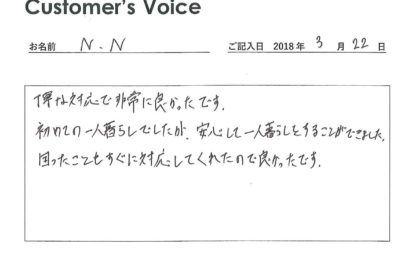 Customer's Voice
お名前 N.N ご記入日 2018年 3月22日
な対応で非常に良かったです。
初めての一人暮らしでしたが、安心して一人暮らしをすることができました。
困ったこともすぐに対応してくれたので良かったです。